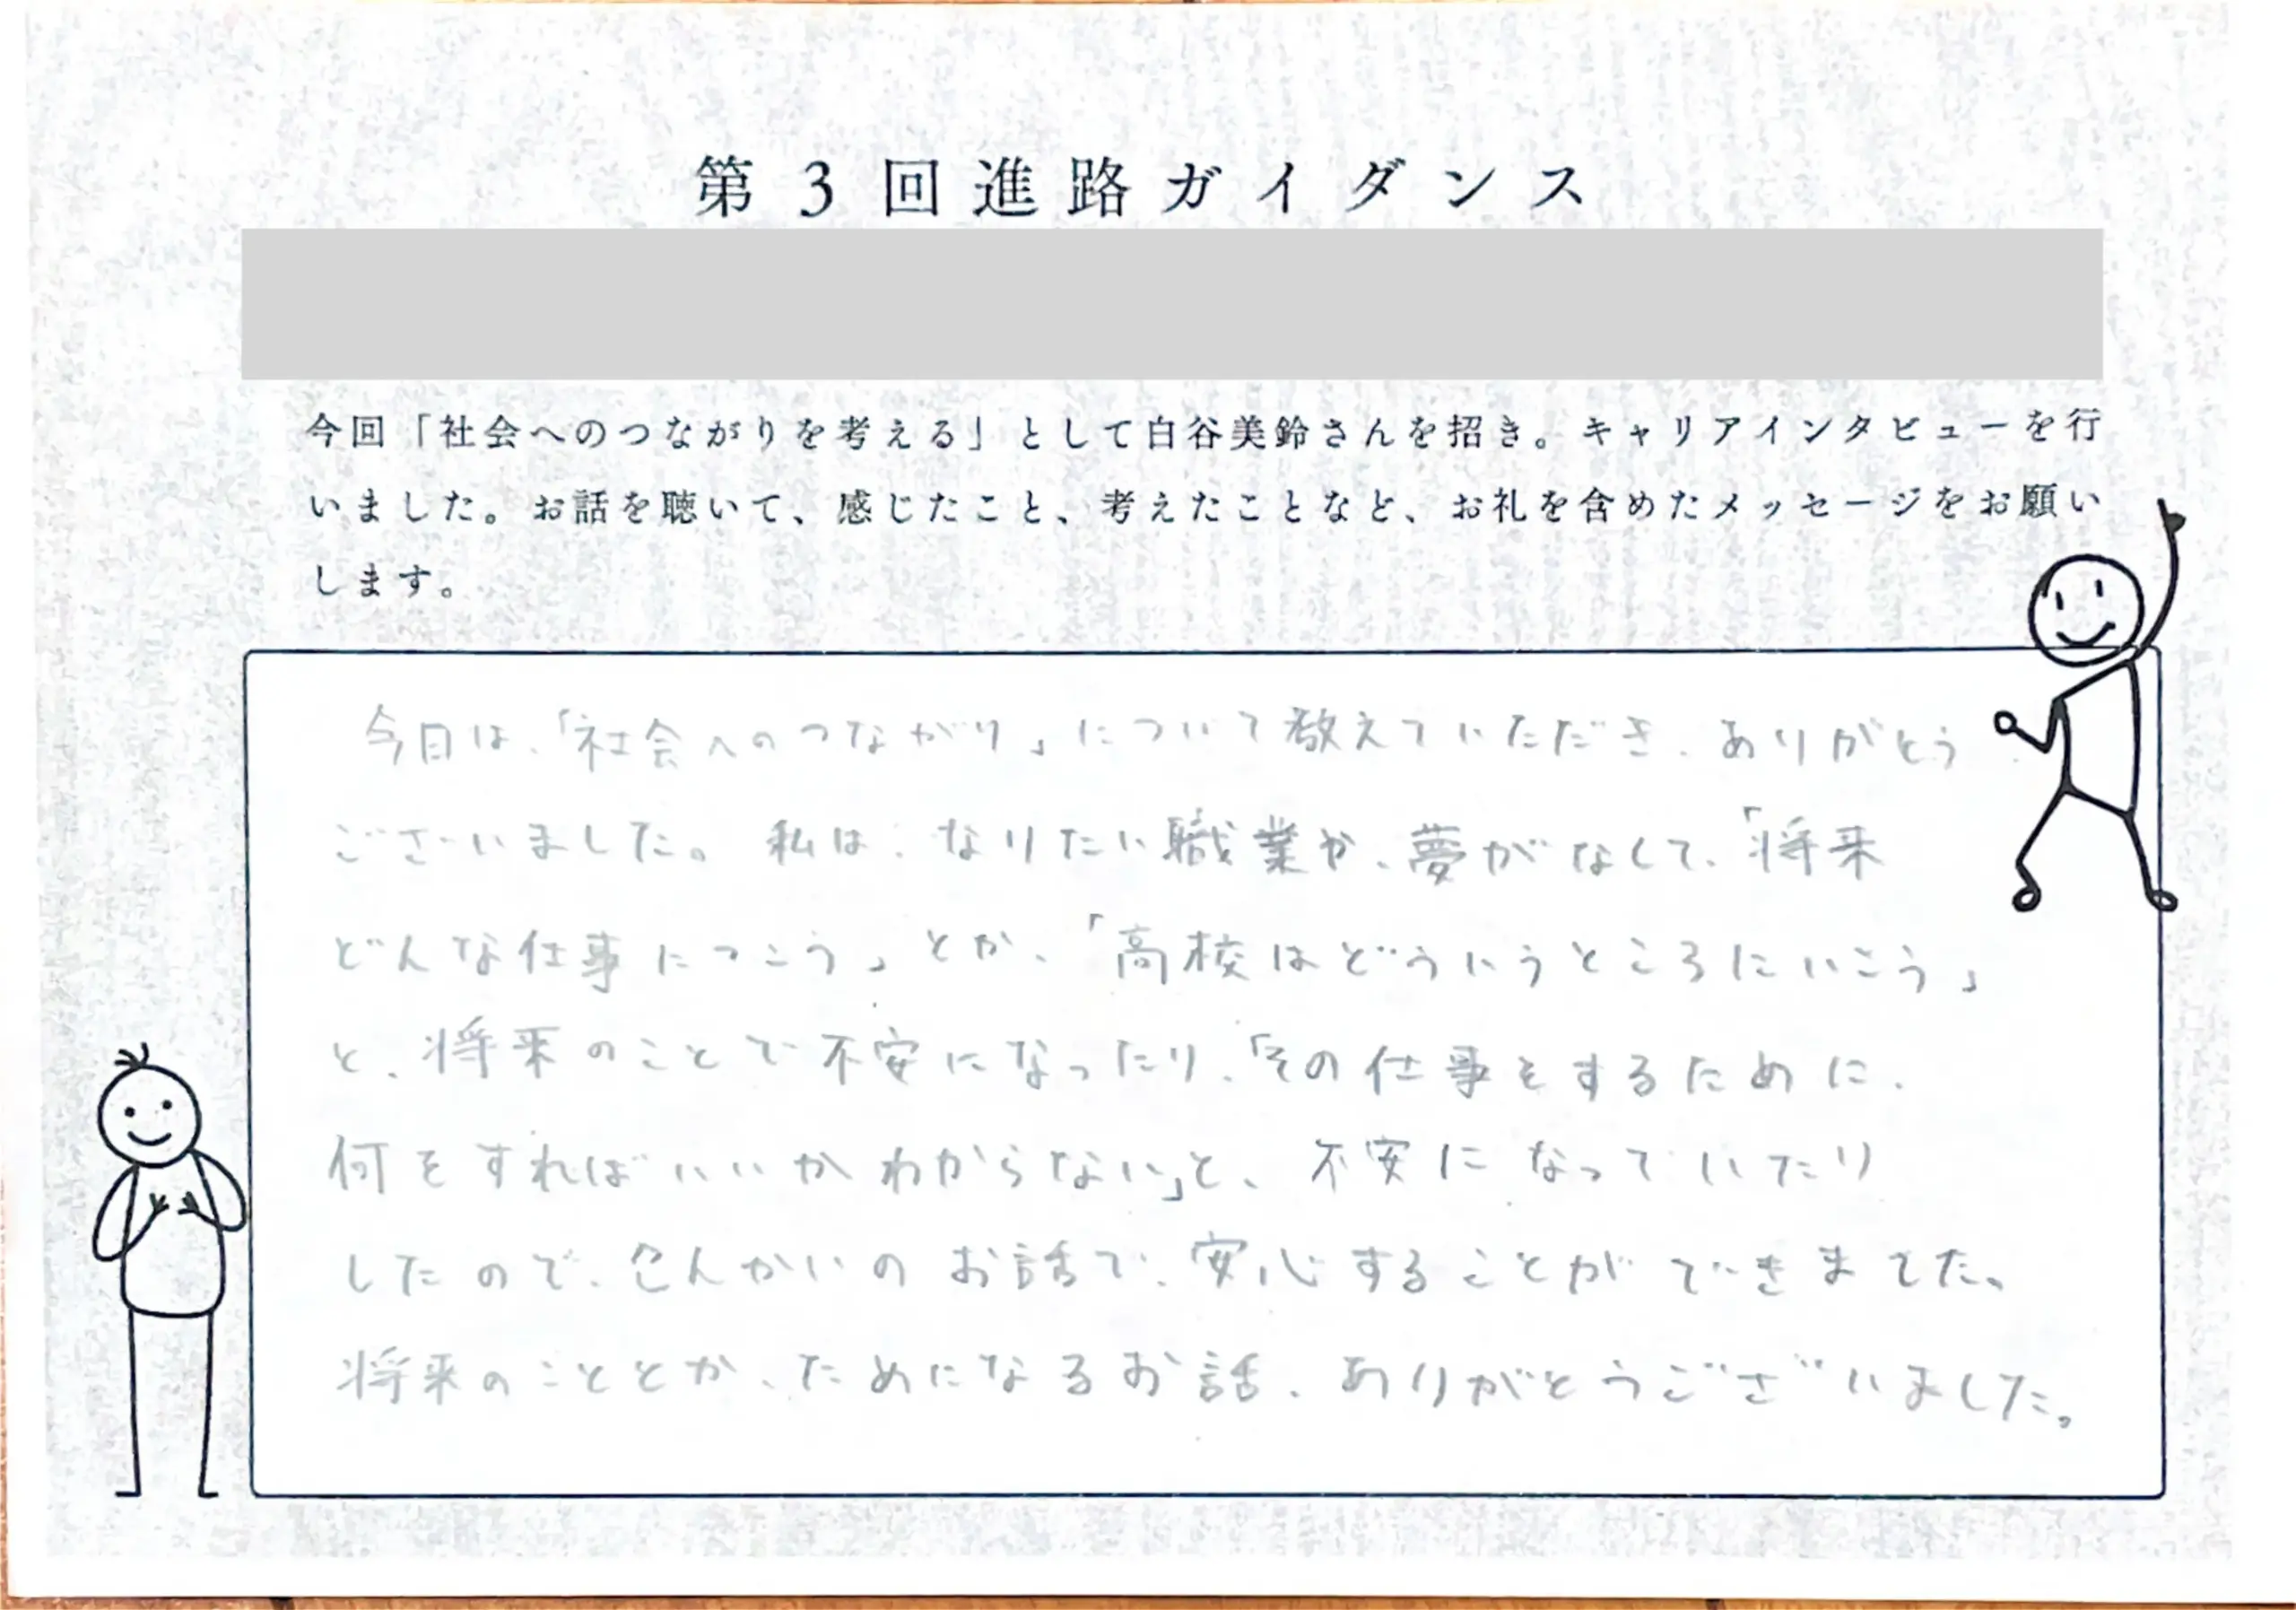 第3回進路ガイダンス
今回「社会へのつながりを考える」として白谷美鈴さんを招き。キャリアインタビューを行
いました。お話を聴いて、感じたこと、考えたことなど、お礼を含めたメッセージをお願い
します。
今日は、「社会へのつながり」について教えていただき、ありがとう
ございました。私は、なりたい職業や、夢がなくて、「将来
どんな仕事につこう」とか、「高校はどういうところにいこう」
と、将来のことで不安になったり、「その仕事をするために、
何をすればいいかわからない」と、不安になっていたり
したので、こんかいのお話で、安心することができました。
将来のこととか、ためになるお話、ありがとうございました。